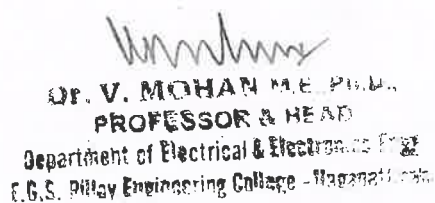 Dr. V. MOHAN M.E., Ph.D.,
PROFESSOR & HEAD
Department of Electrical & Electronics Engg
E.G.S. Pillay Engineering College - Nagapattinam.